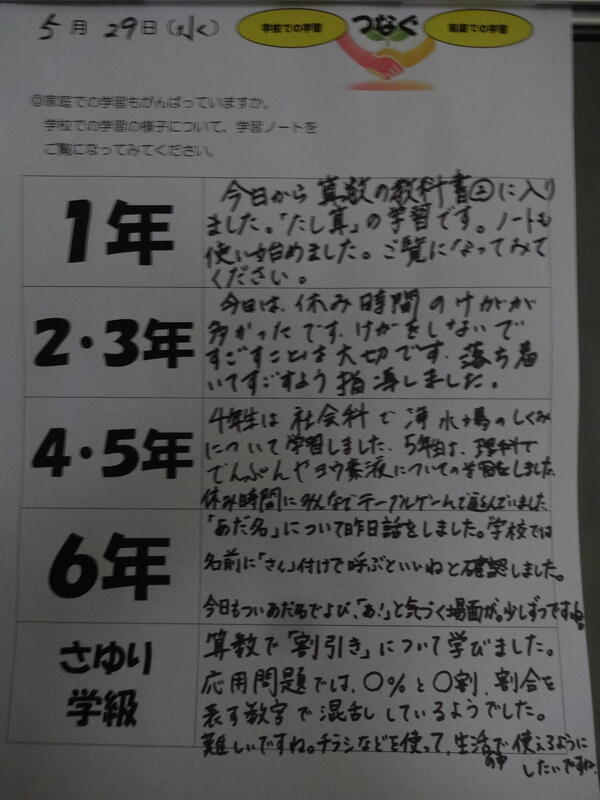 5月29日(水)
学校での学習 つなぐ 家庭での学習
◎家庭での学習もがんばっていますか。
学校での学習の様子について、学習ノートを
ご覧になってみてください。
1年
今日から算数の教科書②に入り
ました。「たし算」の学習です。ノートも
使い始めました。ご覧になってみて
ください。
2・3年
今日は、休み時間のけがが
多かったです。けがをしないで
すごすことは大切です。落ち着
いてすごすよう指導しました。
4・5年
4年生は社会科で浄水場のしくみ
について学習しました。5年生は、理科で
でんぷんやヨウ素液についての学習をしました。
休み時間にみんなでテーブルゲームで遊んでいました
6年
「あだ名」について昨日話をしました。学校では
名前に「さん」付けで呼ぶといいねと確認しました。
今日もついあだ名でよび、「あ!」と気づく場面が。少しずつですね
さゆり
学級
算数で「割引き」について学びました。
応用問題では、○%と○割、割合を
表す数字で混乱しているようでした。
難しいですね。チラシなどを使って、生活の中で使えるように
したいですね。